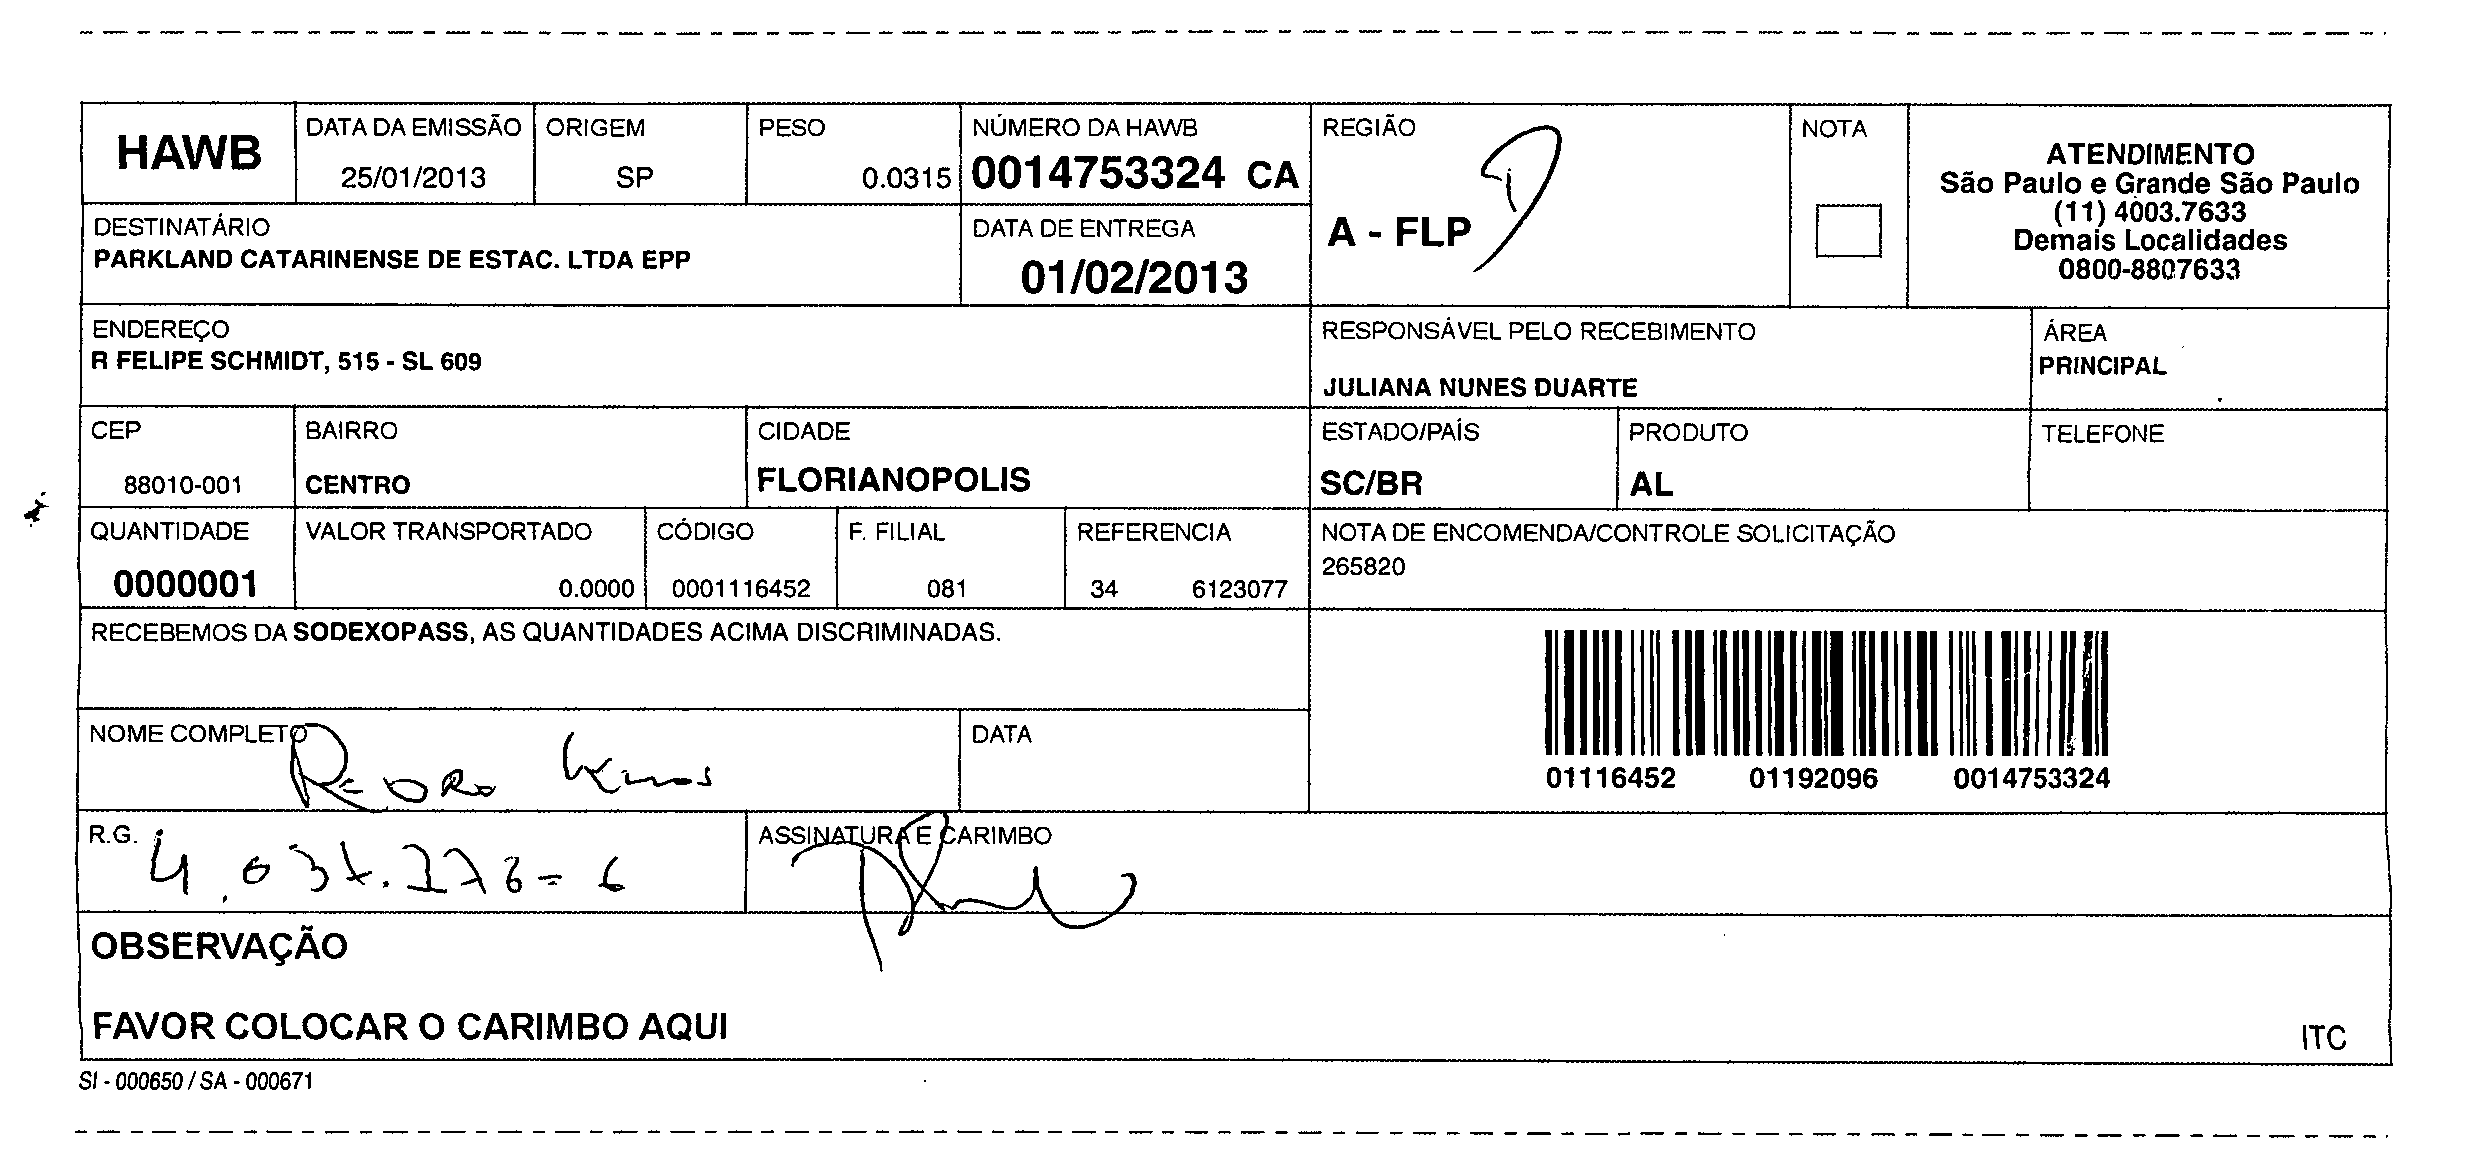 HAWB
DATA DA EMISSÃO
25/01/2013
ORIGEM
SP
PESO
0.0315
NÚMERO DA HAWB
0014753324 CA
REGIÃO
A - FLP
NOTA
ATENDIMENTO
São Paulo e Grande São Paulo
(11) 4003.7633
Demais Localidades
0800-8807633
DESTINATÁRIO
PARKLAND CATARINENSE DE ESTAC. LTDA EPP
DATA DE ENTREGA
01/02/2013
ENDEREÇO
R FELIPE SCHMIDT, 515 - SL 609
RESPONSÁVEL PELO RECEBIMENTO
JULIANA NUNES DUARTE
ÁREA
PRINCIPAL
CEP
88010-001
BAIRRO
CENTRO
CIDADE
FLORIANOPOLIS
ESTADO/PAÍS
SC/BR
PRODUTO
AL
TELEFONE
QUANTIDADE
0000001
VALOR TRANSPORTADO
0.0000
CÓDIGO
0001116452
F. FILIAL
081
REFERENCIA
34 6123077
NOTA DE ENCOMENDA/CONTROLE SOLICITAÇÃO
265820
RECEBEMOS DA SODEXOPASS, AS QUANTIDADES ACIMA DISCRIMINADAS.
01116452 01192096 0014753324
NOME COMPLETO
DATA
R.G.
ASSINATURA E CARIMBO
OBSERVAÇÃO
FAVOR COLOCAR O CARIMBO AQUI
ITC
SI - 000650 / SA - 000671